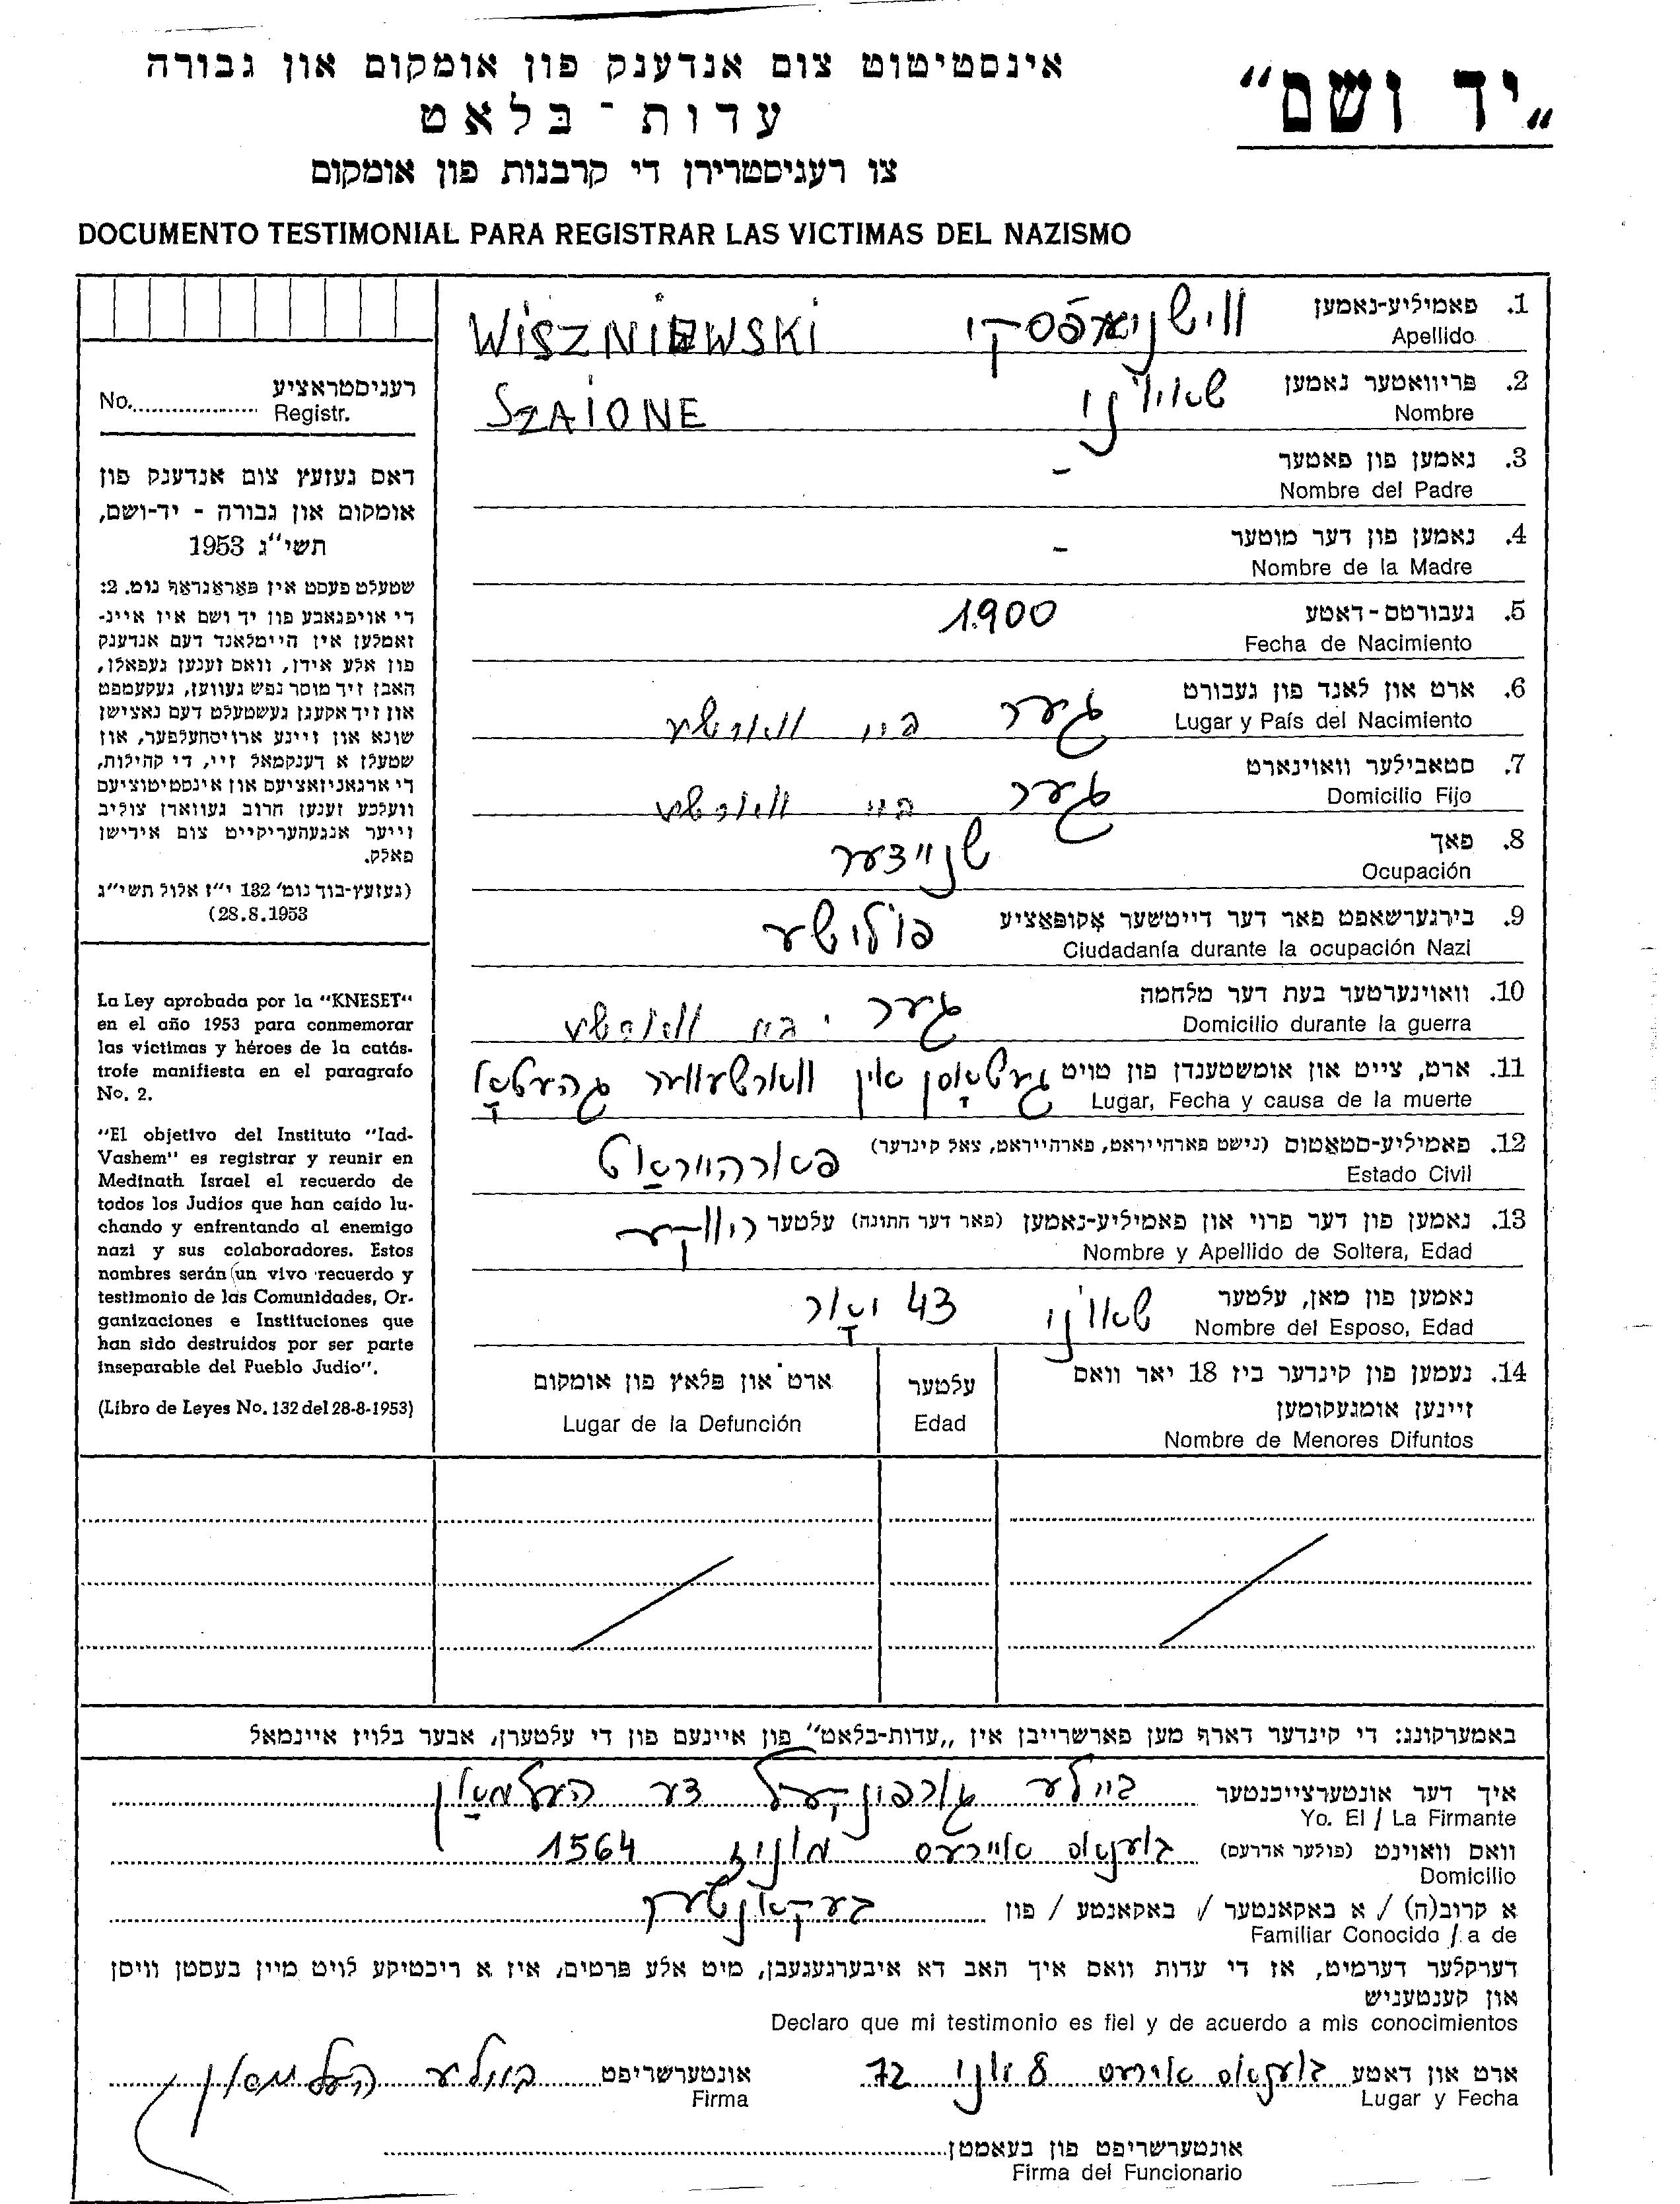 „יד ושם"
אינסטיטוט צום אנדענק פון אומקום און גבורה
עדות-בלאט
צו רעגיסטרירן די קרבנות פון אומקום
DOCUMENTO TESTIMONIAL PARA REGISTRAR LAS VICTIMAS DEL NAZISMO
רעגיסטראציע
No. Registr.
דאס געזעץ צום אנדענק פון
אומקום און גבורה - יד-ושם,
תשי"ג 1953
שטעלט פעסט אין פאראגראף נומ. 2:
די אויפגאבע פון יד ושם איז איינ-
זאמלען אין היימלאנד דעם אנדענק
פון אלע אידן, וואס זענען געפאלן,
האבן זיך מוסר נפש געווען, געקעמפט
און זיך אקעגן געשטעלט דעם נאצישן
שונא און זיינע ארויסהעלפער, און
שטעלן א דענקמאל זיי, די קהילות,
די ארגאניזאציעס און אינסטיטוציעס
וועלכע זענען חרוב געווארן צוליב
זייער אנגעהעריקייט צום אידישן
פאלק.
(געזעץ-בוך נומ' 132 י"ז אלול תשי"ג
28.8.1953)
La Ley aprobada por la "KNESET"
en el año 1953 para conmemorar
las victimas y héroes de la catás-
trofe manifiesta en el paragrafo
No. 2.
"El objetivo del Instituto "Iad-
Vashem" es registrar y reunir en
Medinath Israel el recuerdo de
todos los Judíos que han caído lu-
chando y enfrentando al enemigo
nazi y sus colaboradores. Estos
nombres serán un vivo recuerdo y
testimonio de las Comunidades, Or-
ganizaciones e Instituciones que
han sido destruidos por ser parte
inseparable del Pueblo Judio".
(Libro de Leyes No. 132 del 28-8-1953)
1. פאמיליע-נאמען ווישניעפסקי WISZNIEWSKI
Apellido
2. פריוואטער נאמען שאיוני SZAIONE
Nombre
3. נאמען פון פאטער -
Nombre del Padre
4. נאמען פון דער מוטער -
Nombre de la Madre
5. געבורטס-דאטע 1.900
Fecha de Nacimiento
6. ארט און לאנד פון געבורט גער ביי ווארשע
Lugar y País del Nacimiento
7. סטאבילער וואוינארט גער ביי ווארשע
Domicilio Fijo
8. פאך שניידער
Ocupación
9. בירגערשאפט פאר דער דייטשער אקופאציע פוילישע
Ciudadanía durante la ocupación Nazi
10. וואוינערטער בעת דער מלחמה גער ביי ווארשע
Domicilio durante la guerra
11. ארט, צייט און אומשטענדן פון טויט געשטאָסן אין ווארשעווער געהעטאָ
Lugar, Fecha y causa de la muerte
12. פאמיליע-סטאטוס (נישט פארהייראט, פארהייראט, צאל קינדער) פארהייראַט
Estado Civil
13. נאמען פון דער פרוי און פאמיליע-נאמען (פאר דער חתונה) עלטער ריווקע
Nombre y Apellido de Soltera, Edad
נאמען פון מאן, עלטער שאוני 43 יאָר
Nombre del Esposo, Edad
14. נעמען פון קינדער ביז 18 יאר וואס
זיינען אומגעקומען
Nombre de Menores Difuntos
עלטער
Edad
ארט און פלאץ פון אומקום
Lugar de la Defunción
באמערקונג: די קינדער דארף מען פארשרייבן אין „עדות-בלאט" פון איינעם פון די עלטערן, אבער בלויז איינמאל
איך דער אונטערצייכנטער ביילע גארפונקעל דע העלמאַן
Yo. El / La Firmante
וואס וואוינט (פולער אדרעס) בוענאס איירעס מוניז 1564
Domicilio
א קרוב(ה) / א באקאנטער / באקאנטע / פון בעקאנטער
Familiar Conocido / a de
דערקלער דערמיט, אז די עדות וואס איך האב דא איבערגעגעבן, מיט אלע פרטים, איז א ריכטיקע לויט מיין בעסטן וויסן
און קענטעניש
Declaro que mi testimonio es fiel y de acuerdo a mis conocimientos
ארט און דאטע בוענאס איירעס 8 יוני 72 אונטערשריפט ביילע העלמאן
Lugar y Fecha Firma
אונטערשריפט פון בעאמטן
Firma del Funcionario